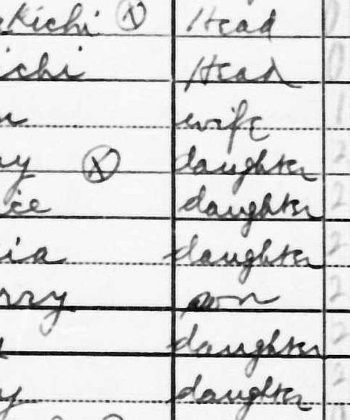 kichi Ⓧ Head
ichi Head
wife
y Ⓧ daughter
ice daughter
ia daughter
rry son
daughter
y daughter